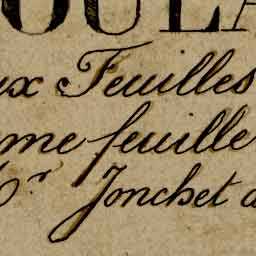 OULA
ux Feuilles
me feuille
Cr Jonchet d